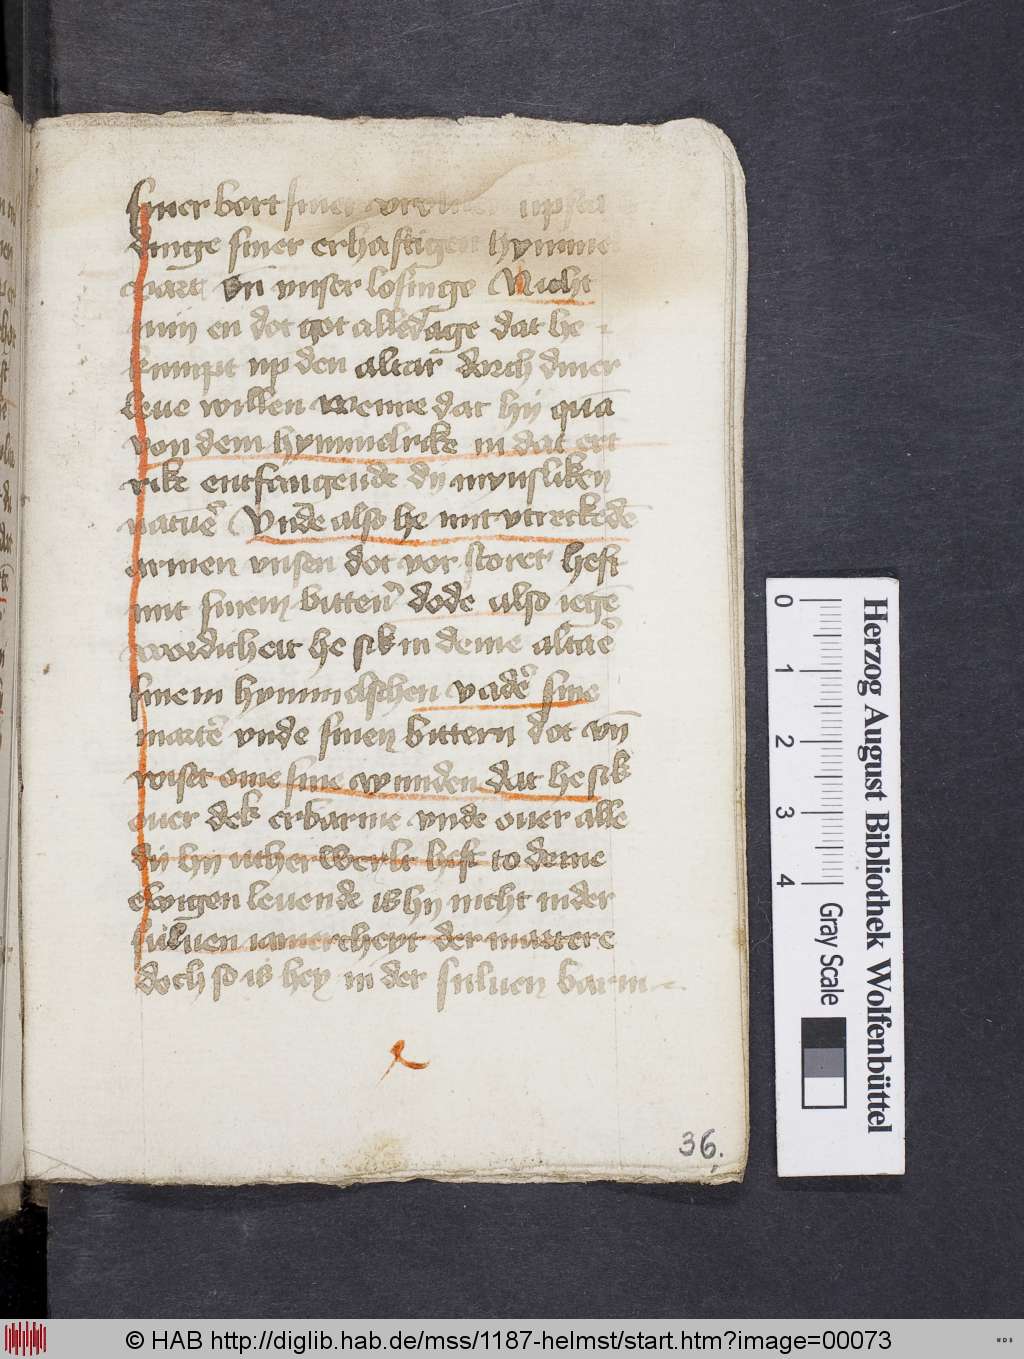 siner bort siner upsta
dinge siner erhaftigen hymme
vart vn̄ vnser losinge Nicht
en dot got alledage dat he
kumpt up den altar dorch diner
leue willen wenne dat hy quā
von dem hymmelrike in dat ert
rike entfangende dy mynsliken
natuer̉ Vnde also he mit vtreckedē
armen vnsen dot vor storet heft
mit sinem bittern̉ dode also iegē
wordicheit he sik in deme altaer̉
sinem hymmelschen vader̉ sine
marter̉ vnde sinen bittern dot vn̄
wiset ome sine wunden dat he sik
ouer dek erbarme vnde ouer alle
dy hy utherwerlt heft to deme
ewigen leuende is hy nicht in der
suluen der martere
doch so is hey in der suluen barm
36.
0 1 2 3 4
Herzog August Bibliothek Wolfenbüttel
Gray Scale
© HAB http://diglib.hab.de/mss/1187-helmst/start.htm?image=00073
WDB